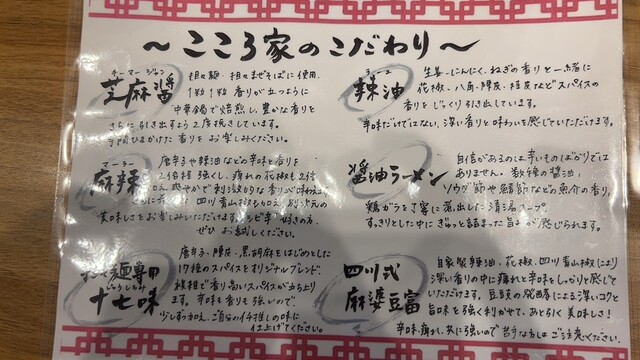 ～こころ家のこだわり～
チーマージャン
芝麻醤
担々麺・担々まぜそばに使用。
1粒1粒香りが立つように
中華鍋で焙煎し、豊かな香りを
さらに引き出すよう2度挽きしています。
手間ひまかけた香りをお楽しみください。
ラーユ
辣油
生姜・にんにく・ねぎの香りと一緒に
花椒、八角、陳皮、桂皮などスパイスの
香りをじっくり引き出しています。
辛味だけではない、深い香りと味わいを感じていただけます。
マーラー
麻辣
唐辛子や辣油などの辛味と香りを
2倍程強くし、痺れの花椒も2倍
爽やかで刺激的な香りが味わえ
四川青山椒も加え、別次元の
美味しさをお楽しみいただけます。シビ辛好きの方、
ぜひお試しください。
醤油ラーメン
自信があるのは辛いものばかりでは
ありません。数種の醤油、
ソウダ節や鯖節などの魚介の香り、
鶏ガラを丁寧に煮出した清湯スープ。
すっきりとした中にぎゅっと詰まった旨みが感じられます。
麺専用
じゅうしちみ
十七味
唐辛子、陳皮、黒胡麻をはじめとした
17種のスパイスをオリジナルブレンド。
香り高いスパイスが立ち上り
ます。辛味も香りも強いので
少しずつ加え、ご自分のイチ推しの味に
仕上げてください。
四川式
麻婆豆腐
自家製辣油、花椒、四川青山椒により
深い香りの中に痺れと辛味をしっかりと感じて
いただけます。豆鼓の発酵による深いコクと
旨味を強く利かせて、あと引く美味しさ！
辛味、痺れ、共に強いので苦手な方はご注意ください。